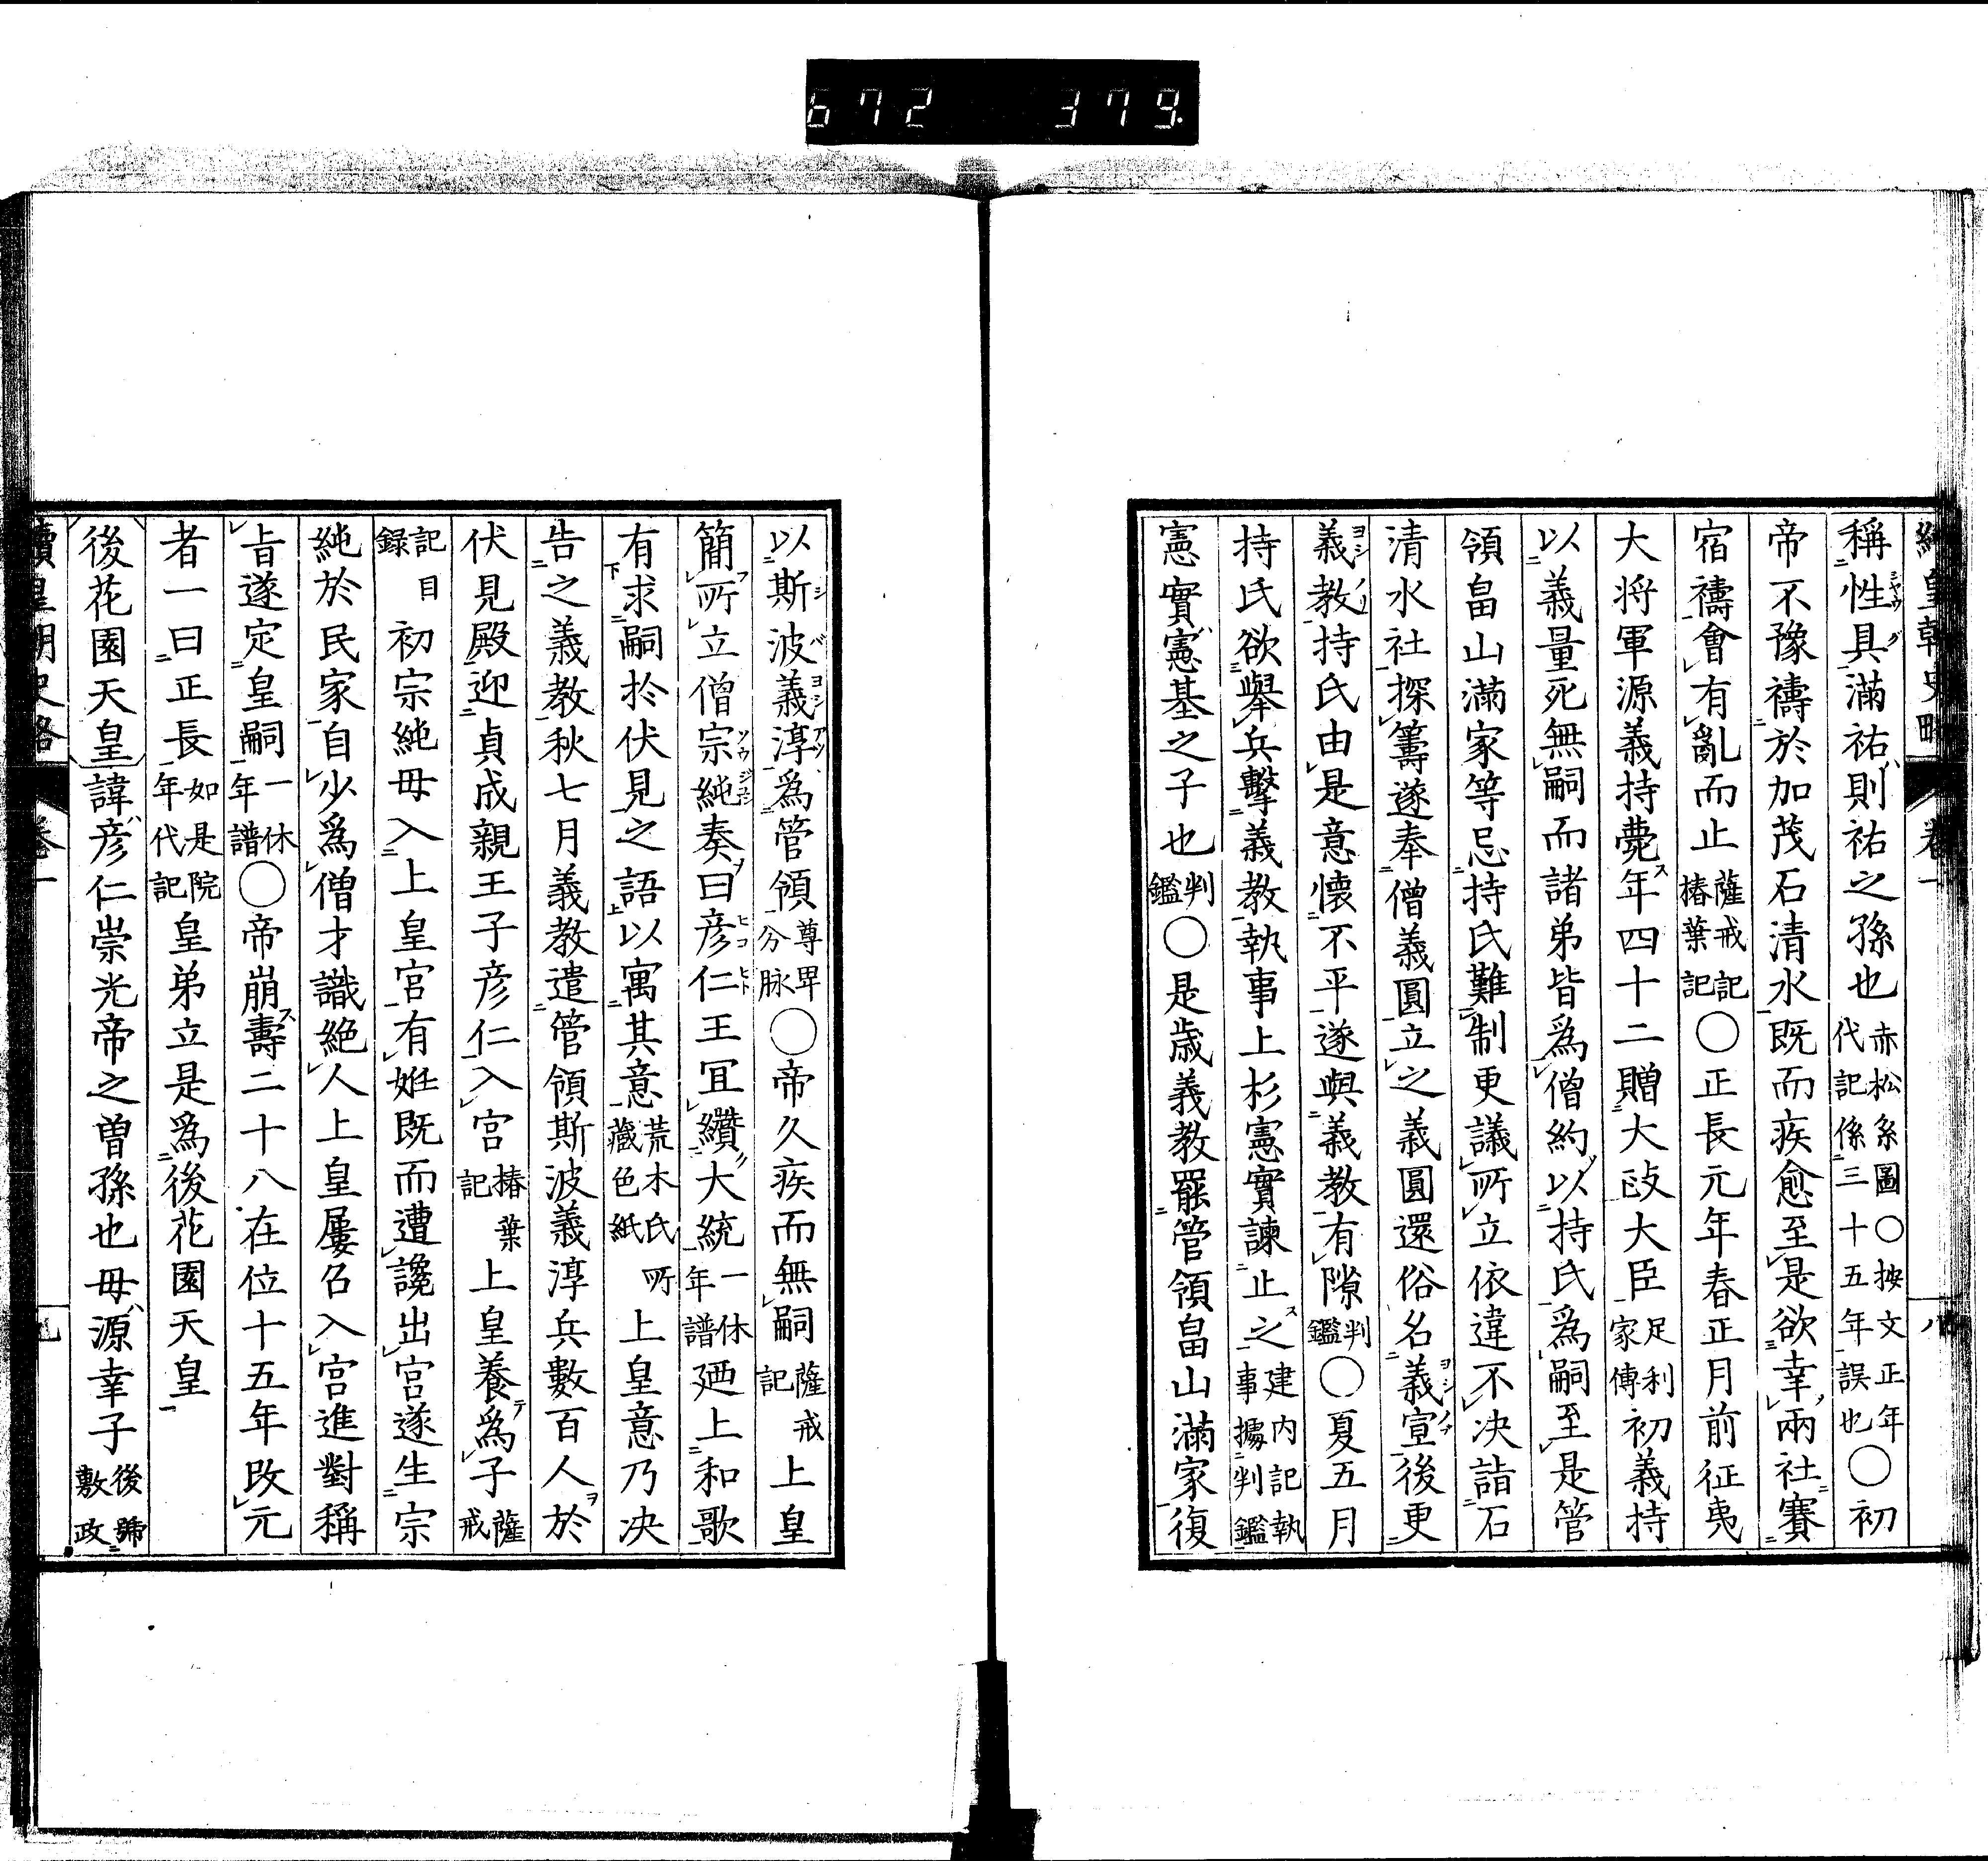 672 379.
續皇朝史略 卷一 八
稱性具滿祐則祐之孫也赤松系圖〇按文正年代記係三十五年誤也〇初
帝不豫禱於加茂石清水既而疾愈至是欲幸兩社賽
宿禱會有亂而止薩戒記椿葉記〇正長元年春正月前征夷
大将軍源義持薨年四十二贈大政大臣足利家傳初義持
以義量死無嗣而諸弟皆爲僧約以持氏爲嗣至是管
領畠山滿家等忌持氏難制更議所立依違不决詣石
清水社探籌遂奉僧義圓立之義圓還俗名義宣後更
義教持氏由是意懷不平遂與義教有隙判鑑〇夏五月
持氏欲舉兵擊義教執事上杉憲實諫止之建内記執事據判鑑
憲實憲基之子也判鑑〇是歳義教罷管領畠山滿家復
以斯波義淳爲管領尊卑分脉〇帝久疾而無嗣薩戒記上皇
簡所立僧宗純奏曰彦仁王宜纘大統一休年譜廼上和歌
有求嗣於伏見之語以寓其意荒木氏所藏色紙上皇意乃决
告之義教秋七月義教遣管領斯波義淳兵數百人於
伏見殿迎貞成親王子彦仁入宮椿葉記上皇養爲子薩戒
記目録初宗純毋入上皇宮有姙既而遭讒出宮遂生宗
純於民家自少爲僧才識絶人上皇屢召入宮進對稱
旨遂定皇嗣一休年譜〇帝崩壽二十八在位十五年改元
者一曰正長如是院年代記皇弟立是爲後花園天皇
後花園天皇諱彦仁崇光帝之曽孫也毋源幸子後號敷政
續皇朝史略 卷一 九